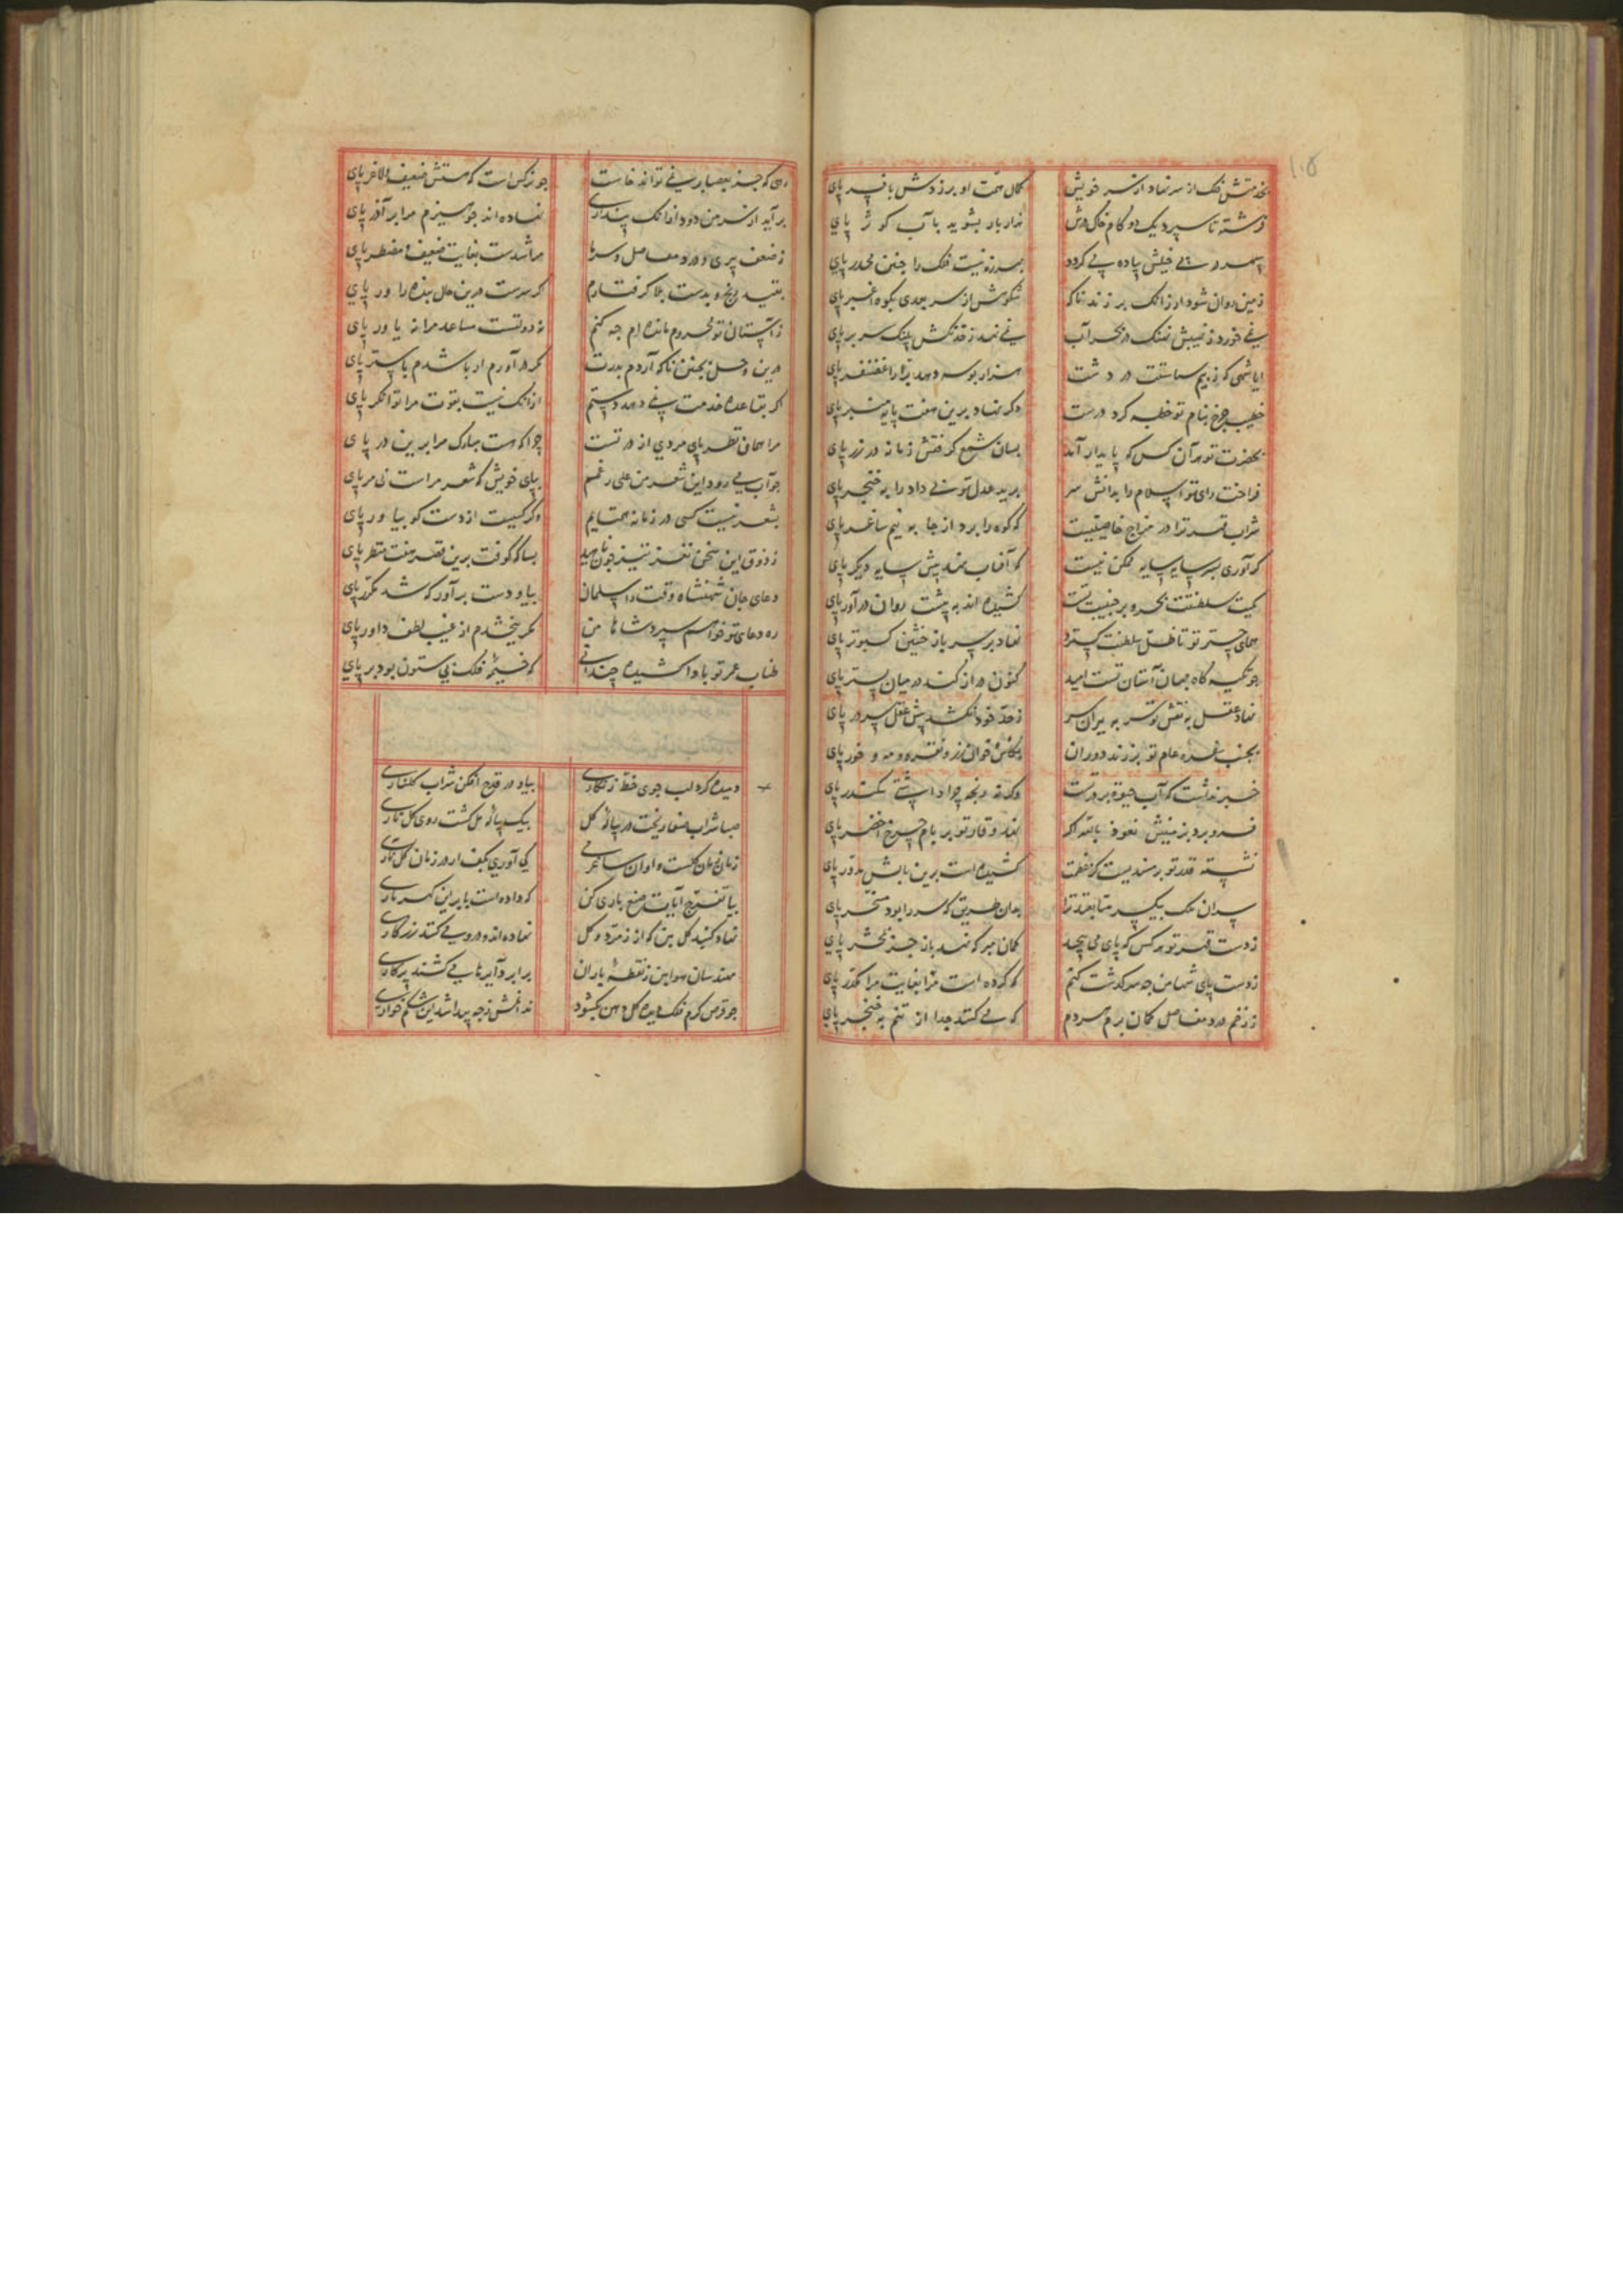 ۱۰۵
بخدمتش فلک از سر نهاد افسر خویش
کمال همت او بر زدش بافسر پای
فرشته تا سپرد یک دو کام خاک درش
هزار بار بشوید بآب کوثر پای
سپهر در پی خیلش پیاده می کردد
بهرزه نیست فلک را چنین مخدر پای
زمین روان شود ار زانک بر زند ناکه
شکوهش از سر بعدی بکوه اغبر پای
نمی خورد ز نهیبش نهنک در بحر آب
نمی نهد ز خدنکش پلنک بر بر پای
ایا شهی که ز بیم سیاستت در دشت
هزار بوسه دهد را غضنفر پای
خطیب چرخ بنام تو خطبه کرد درست
دکر نهاد برین هفت پایه منبر پای
بحضرت تو هر آن کس که پایدار آمد
بسان شمع کرفتش زمانه در زر پای
فراخت رای تو اسلام را بدانش سر
برید عدل تو بی داد را بخنجر پای
شراب قهر ترا در مزاج خاصیتیست
که کوه را برد از جا به نیم ساغر پای
کر آوری بسر سایه سایه ممکن نیست
که آفتاب نهد پیش سایه دیکر پای
کمیت سلطنتت بحر و بر جنیبت تست
کشیده اند به پشت روان در آور پای
همای چتر تو تا ظل سلطنت کسترد
نهاد بر سر باز خشین کبوتر پای
چو تکیه کاه جهان آستان تست امید
کنون دراز کند در میان بستر پای
نهاد عقل به نقش تو سر به پیران سر
ز حد خود نکشد پیش عقل سرور پای
بجنب سفره عام تو بر زند دوران
بکاسه خوان زر و نقره و مه و خور پای
خبر نداشت که آب حیوة بر در تست
وکر نه رنجه چرا داشتی سکندر پای
فرو برد بزمینش نعوذ بالله اکر
نهد وقار تو بر بام چرخ اخضر پای
نشسته قدر تو بر مسندیست کز عظمت
کشیده است برین بالش مدور پای
سران ملک بیک سر متابعند ترا
بدان طریق که سر را بود مسخر پای
ز دست قهر تو هر کس که پای می پیچد
کمان مبر که نهد باز جز بمحشر پای
ز دست پای شها من چه سرکذشت کنم
که کرده است مرا بغایت مرا مکدر پای
ز زخم درد مفاصل کمان برم هر دم
که می کنند جدا از تنم به خنجر پای
رهی که جز بعصا بر نمی تواند خاست
چو نرکس است که هستش ضعیف و لاغر پای
بر آید از سر من دود از انک پنداری
نهاده اند چو هیزم مرا بر آذر پای
ز ضعف پیری و درد مفاصل و سرما
مرا شدست بغایت ضعیف و مضطر پای
بقید رنج و بدست بلا کرفتارم
کر سرست درین حال بنده را ور پای
ز آستان تو محروم مانده ام چه کنم
نه دولتست مساعد مرا نه یاور پای
درین وحل بچنین ناکه آردم بدرت
کر در آورم ار باشدم باستر پای
اکر بقاعده خدمت نمی دهد دستم
از انک نیست بقوت مرا توانکر پای
مرا همان نظر پای مردی از در تست
چرا که هست مبارک مرا برین در پای
چو آب می رود این شعر من علی رغمم
بپای خویش که شعر مراست نی مر پای
بشعر نیست کسی در زمانه همتایم
وکر کسیست از دست کو بیا ور پای
ز ذوق این سخن نغز تیز چون ناهید
بسا که کوفت برین قصر هفت منظر پای
دعای جان شهنشاه وقت را سلمان
بیا و دست بر آور که شد مکرر پای
ره دعای تو خواهم سپرد شاها من
مکر ببخشدم از غیب لطف داور پای
طناب عمر تو بادا کشیده چندانی
که خیمه فلک بی ستون بود بر پای
دمیده کرد لب جوی خط زنکاری
بیاد در قدح افکن شراب کلناری
صبا شراب صفا ریخت در پیاله کل
بیک پیاله مل کشت روی کل ناری
زمان زمان کلست و اوان ساغر می
کی آوری بکف ار در زمان کل ناری
بیا تفرج آیات صنع باری کن
که داده است بابر این کهرباری
نهاد کنبد کل بین که از زمرد و کل
نهاده اند و درو می کنند زرکاری
مهندسان هوا بین ز نقطه باران
برابر دایرها می کشند پرکاری
چو قرص کرم فلک دیده کل دهن بکشود
ندانمش ز چه پیدا شد این شکم خواری